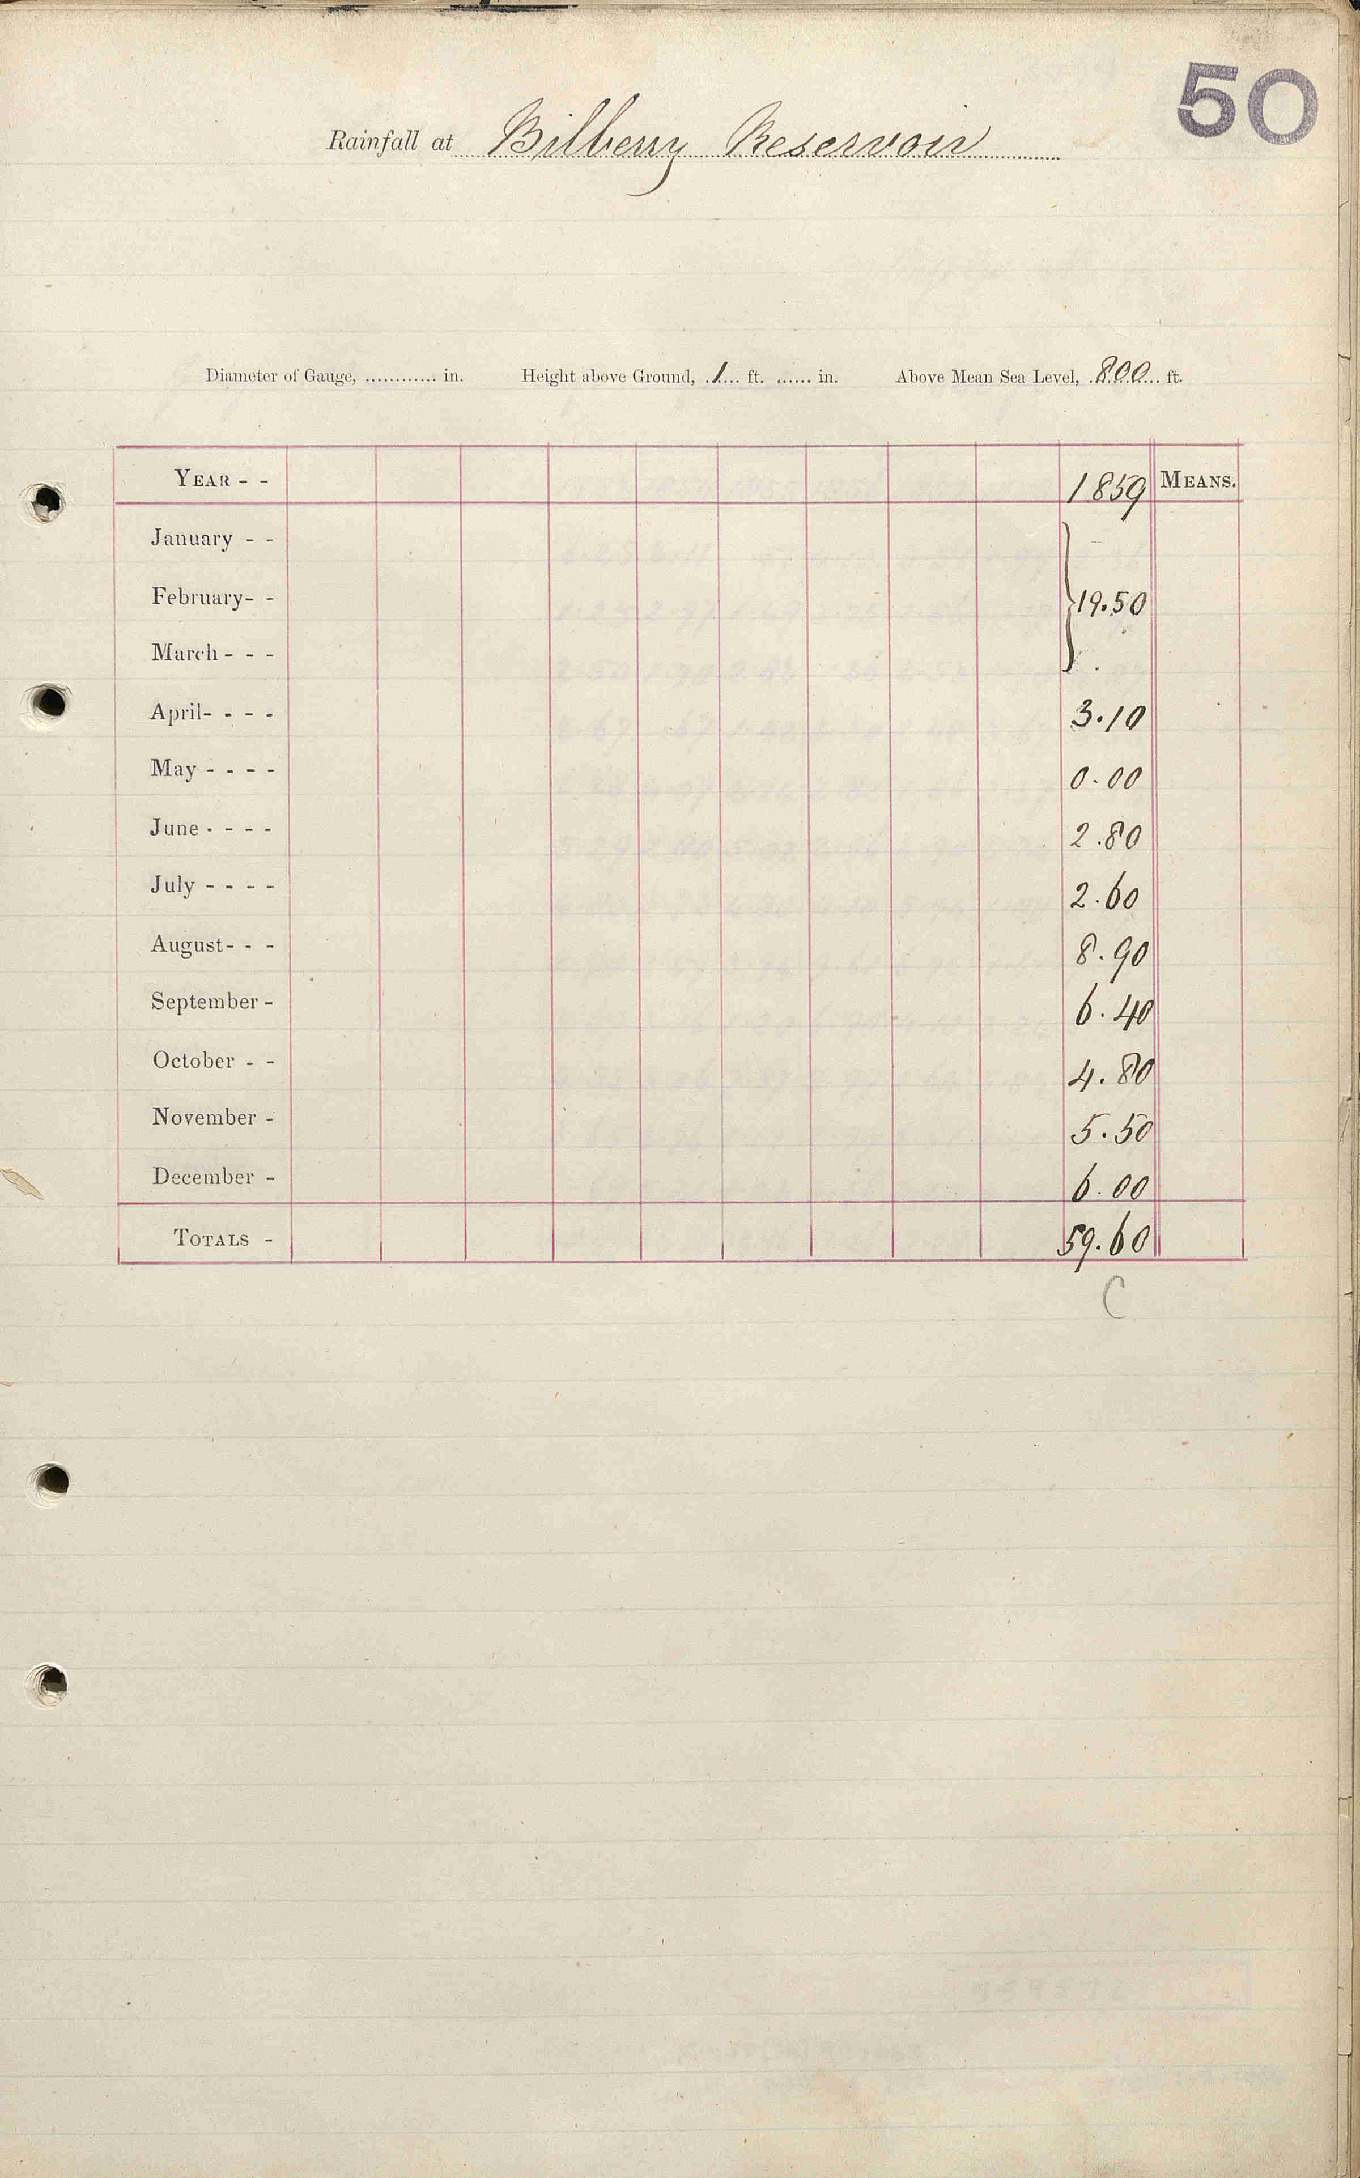 50
Rainfall at Bilberry Reservoir
Diameter of Gauge, ............ in. Height above Ground, 1 ft. ...... in. Above Mean Sea Level, 800 ft.
YEAR - - 1859 MEANS.
January - -
February - - 19.50
March - - -
April - - - - 3.10
May - - - - 0.00
June - - - - 2.80
July - - - - 2.60
August - - - 8.90
September - 6.40
October - - 4.80
November - 5.50
December - 6.00
TOTALS - 59.60
C